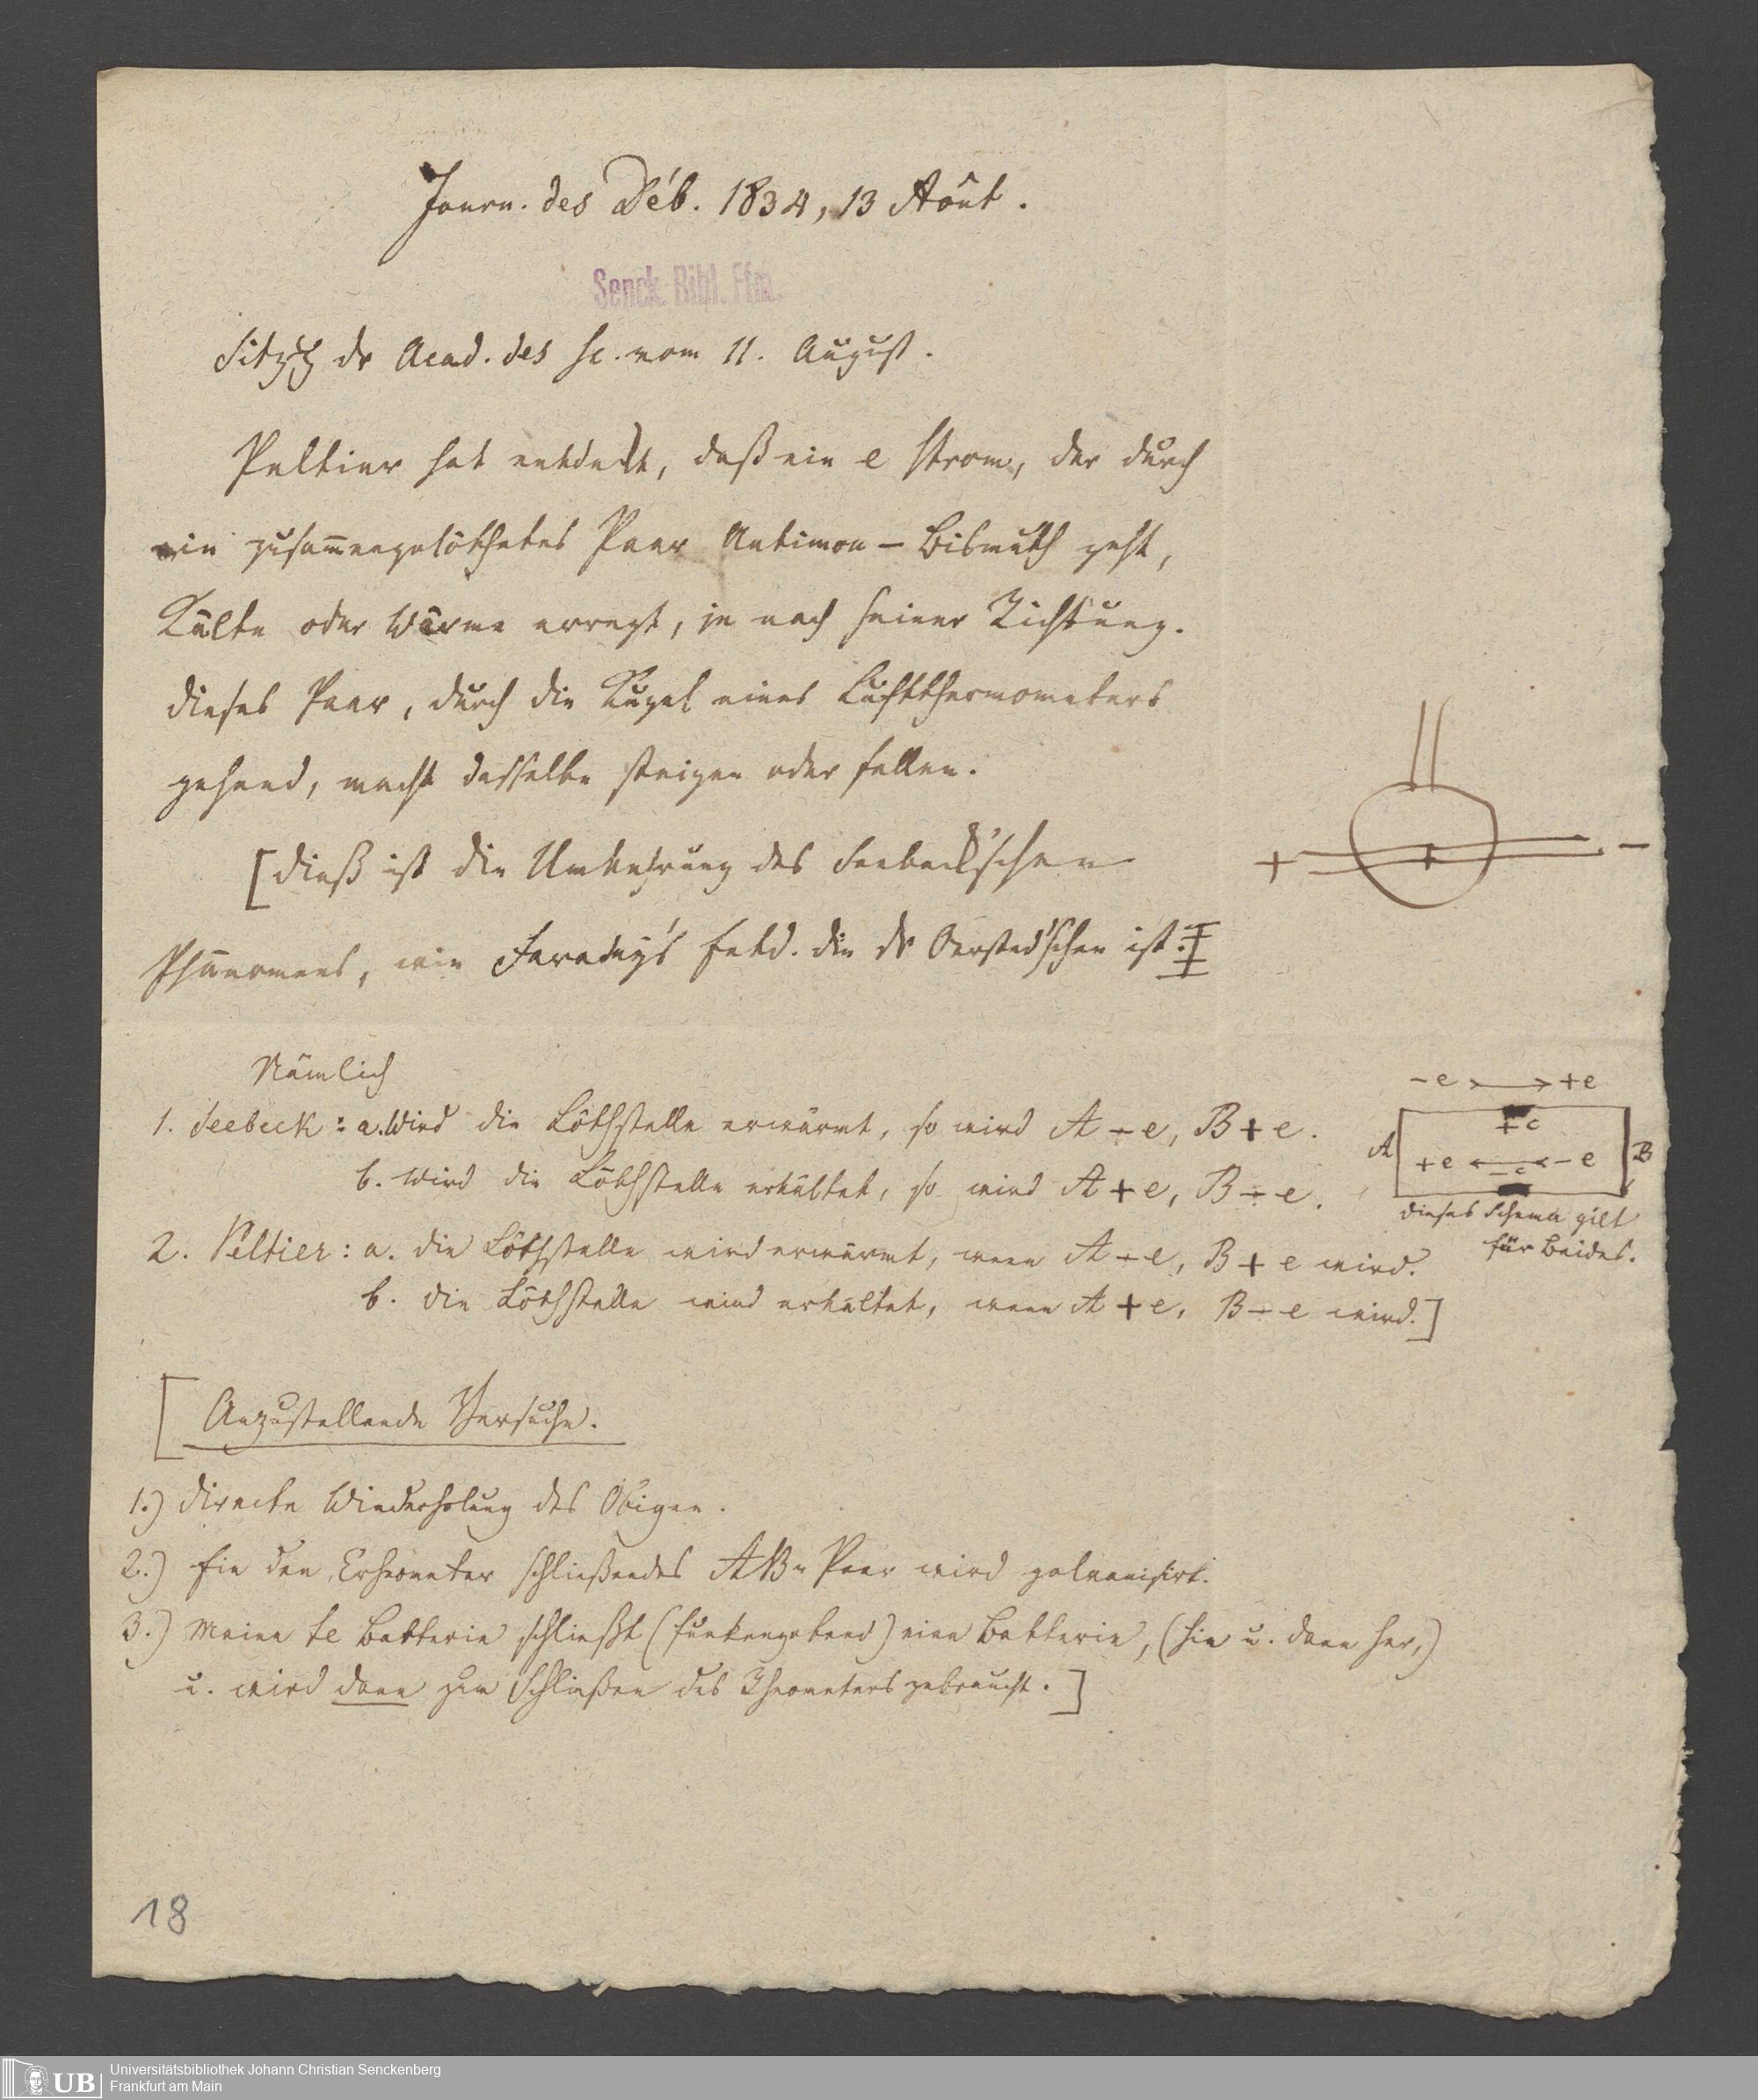 Journ. des Déb. 1834, 13 Aôut.
Senck. Bibl. Ffm.
Sitzg dr Acad. des Sc. vom 11. August.
Peltier hat entdeckt, daß ein e Strom, der durch
ein zusam̄engelöthetes Paar Antimon – Bismuth geht,
Kälte oder Wärme erregt, je nach seiner Richtung.
Dieses Paar, durch die Kugel eines Luftthermometers
gehend, macht dasselbe steigen oder fallen.
[Dieß ist die Umkehrung des Seebeck'schen
Phänomens, wie Faraday's Entd. die dr Oersted'schen ist.]
+ + –
Nämlich
1. Seebeck: a. Wird die Löthstelle erwärmt, so wird A – e, B + e.
b. Wird die Löthstelle erkältet, so wird A + e, B – e.
2. Peltier: a. die Löthstelle wird erwärmt, wenn A – e, B + e wird.
b. die Löthstelle wird erkältet, wenn A + e, B – e wird.]
– e +e
+ c
A B
+e – e
– c
Dieses Schema gilt
für Beides.
[Anzustellende Versuche.
1.) Directe Wiederholung des Obigen.
2.) Ein den Rheometer schließendes AB- Paar wird galvanisirt.
3.) Meine te Batterie schließt (funkengebend) eine Batterie, (hin u. dann her,)
u. wird dann zum Schließen des Rheometers gebraucht.]
18
UB
Universitätsbibliothek Johann Christian Senckenberg
Frankfurt am Main